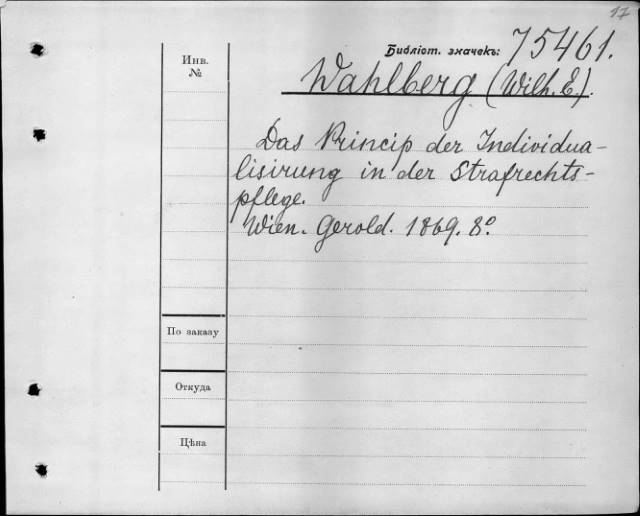 17
Библіот. значекъ: 75461.
Инв.
№
Wahlberg (Wilh. E.).
Das Princip der Individua-
lisirung in der Strafrechts-
pflege.
Wien. Gerold. 1869. 8.°
По заказу
Откуда
Цѣна